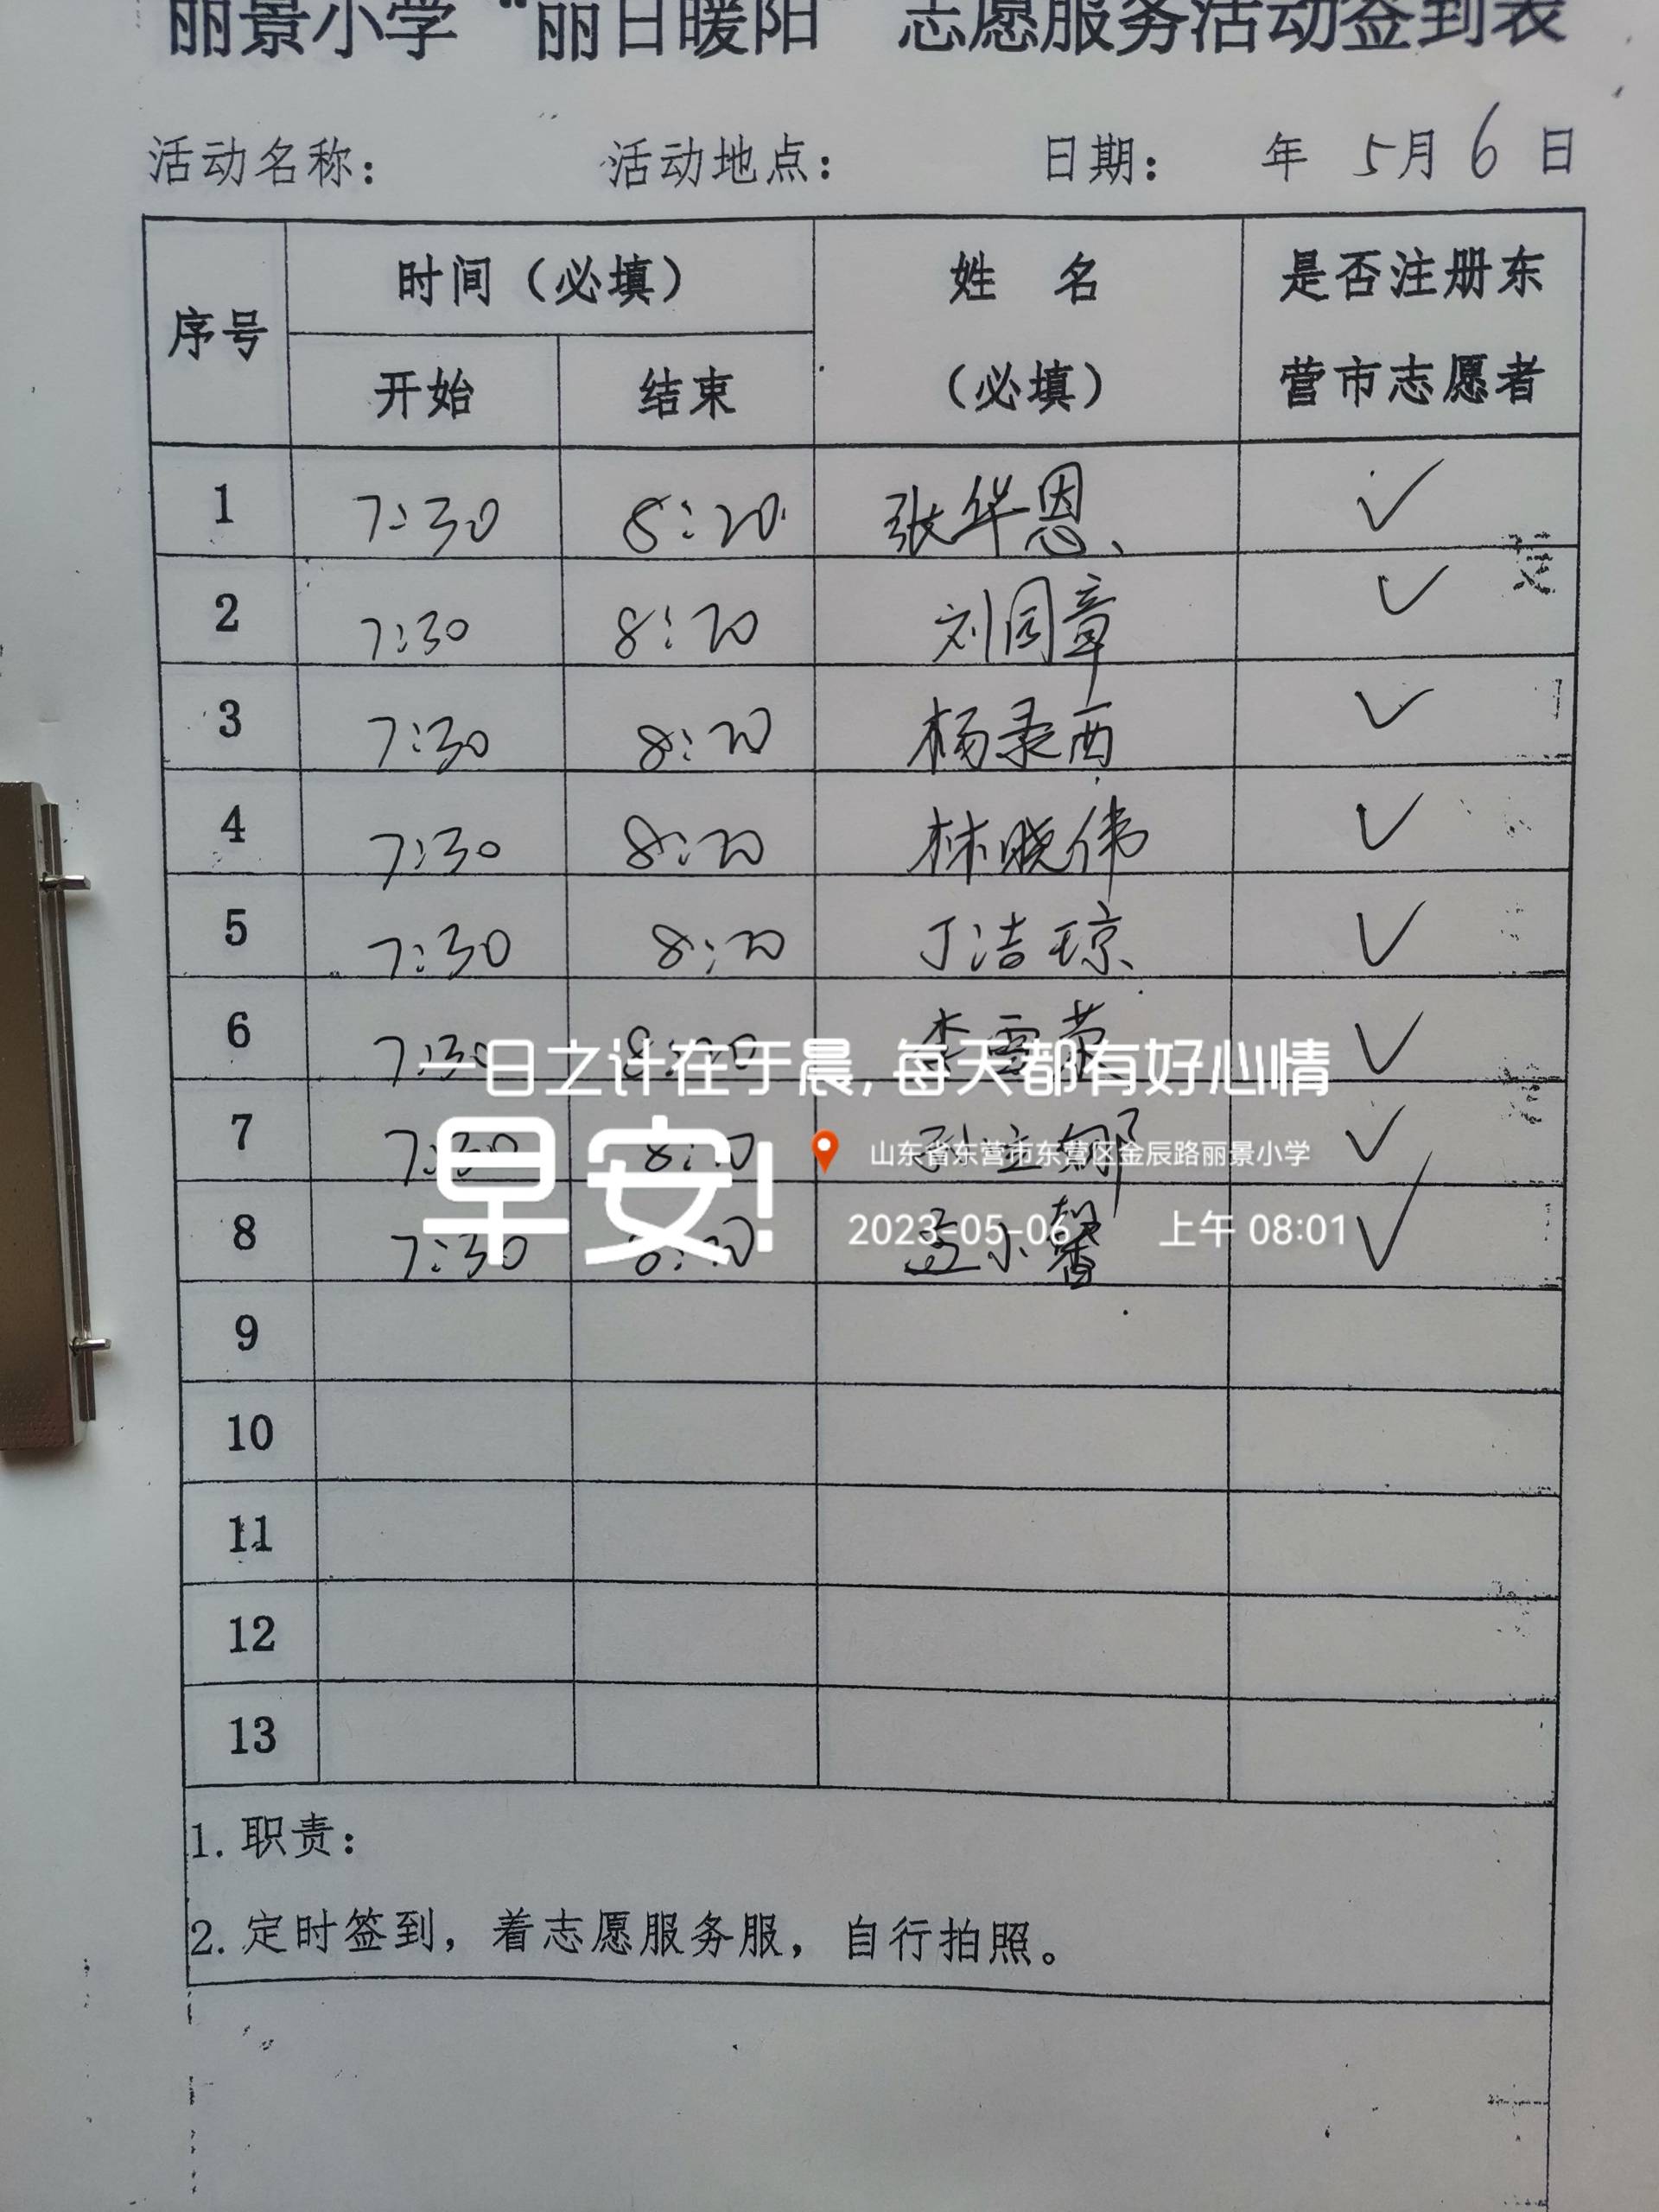 丽景小学“丽日暖阳”志愿服务活动签到表
活动名称: 活动地点: 日期: 年 5月 6 日
序号 时间(必填) 姓 名 是否注册东
开始 结束 (必填) 营市志愿者
1 7:30 8:20 张华恩 ✓
2 7:30 8:20 刘同章 ✓
3 7:30 8:20 杨录西 ✓
4 7:30 8:20 林晓伟 ✓
5 7:30 8:20 丁洁琼 ✓
6 7:30 8:20 李雪 ✓
一日之计在于晨,每天都有好心情
7 7:30 8:20 孙立娜 ✓
早安!
山东省东营市东营区金辰路丽景小学
2023-05-06 上午 08:01
8 7:30 8:20 孟小馨 ✓
9
10
11
12
13
1.职责:
2.定时签到,着志愿服务服,自行拍照。